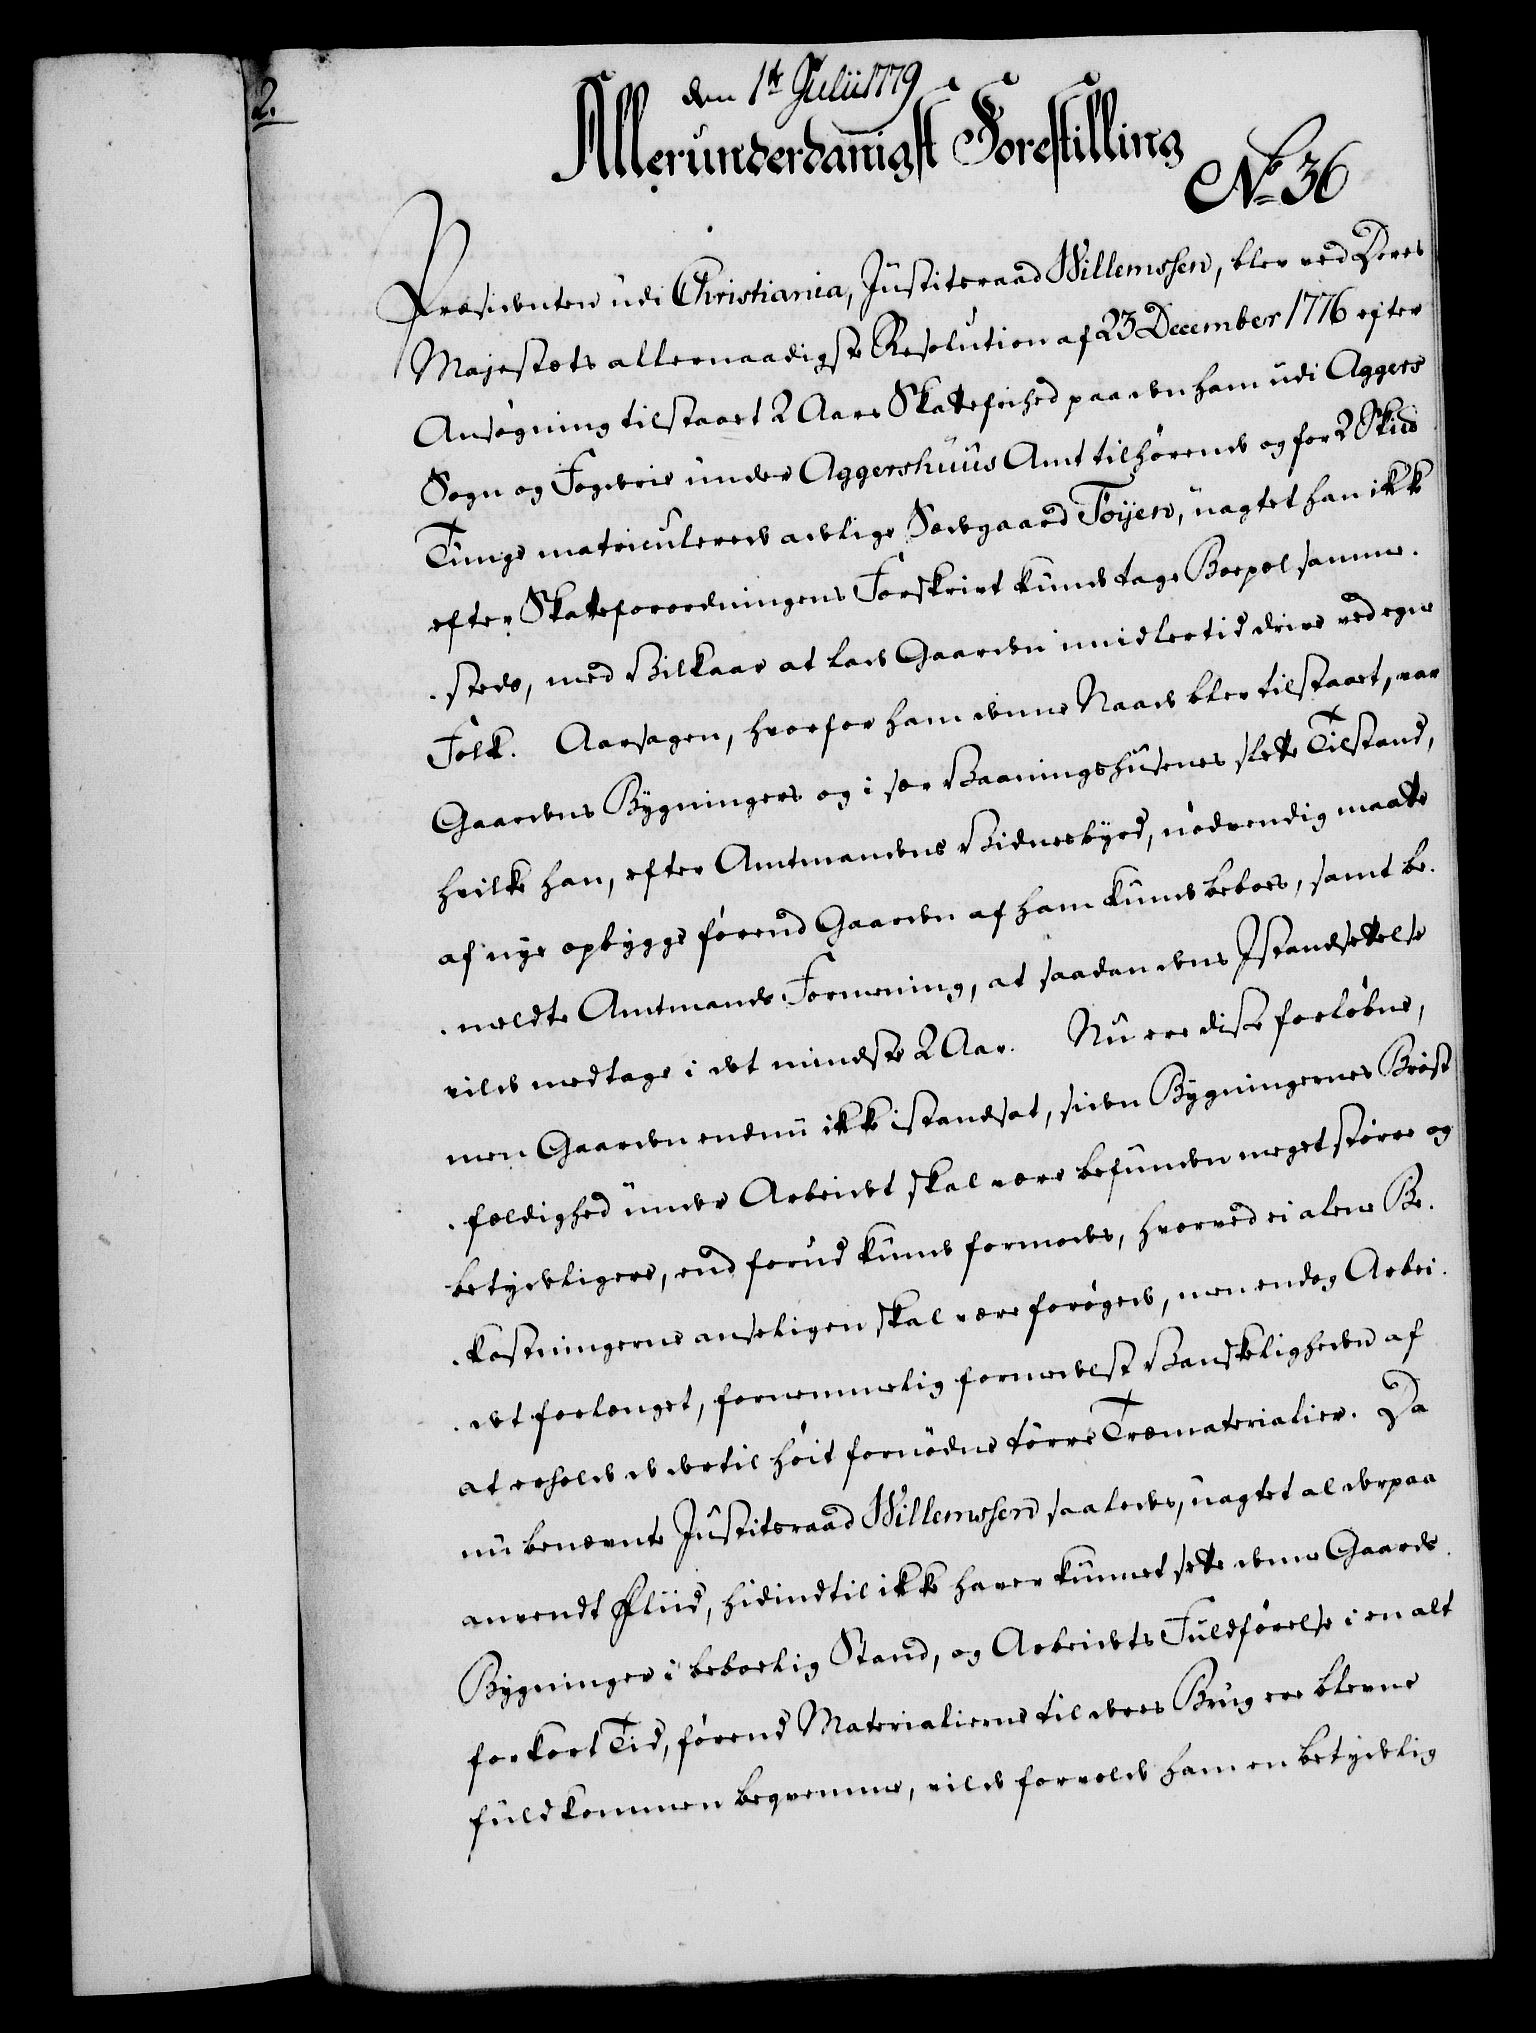 2.
den 1te Julii 1779
Allerunderdanigst Forestilling
No 36
Præsidenten udi Christiania, Justitsraad Willemssen, blev ved Deres
Majestæts allernaadigste Resolution af 23 December 1776 efter
Ansøgning tilstaaet 2 Aars Skattefrihed paa den ham udi Aggers
Sogn og Fogderie under Aggershuus Amt tilhørende og for 2 Skip
Tunge matriculerede adelige Sædegaard Tøijen, uagtet han ikke
efter Skatteforordningens Forskrivt kunde tage Boepæl samme-
-steds, med Vilkaar at lade Gaarden imidlertid drive ved egne
Folk. Aarsagen, hvorfor ham denne Naade blev tilstaaet, var
Gaardens Bygningers og i sær Vaaningshusenes slette Tilstand,
hvilke han, efter Amtmandens Vidnesbyrd, nødvendig maatte
af nye opbygge førend Gaarden af ham kunde beboes, samt be-
-meldte Amtmands Formening, at saadan dens Istandsettelse
vilde medtage i det mindste 2 Aar. Nu ere disse forløbne,
men Gaarden endnu ikke istandsat, siden Bygningernes Brøst-
-fældighed under Arbeidet skal være befunden meget større og
betydeligere, end forud kunde formodes, hvorved ei alene Be-
-kostningerne anseligen skal være forøgede, men endog Arbei-
-det forlænget, fornemmelig formedelst Vanskeligheden af
at erholde de dertil høit fornødne tørre Træmaterialier. Da
nu benævnte Justitsraad Willemssen saaledes, uagtet al derpaa
anvendt Fliid, hidindtil ikke haver kunnet sette denne Gaards
Bygninger i beboelig Stand, og Arbeidets Fuldførelse i en alt
for kort Tid, førend Materialierne til deres Brug ere blevne
fuldkommen beqvemme, vilde forvolde ham en betydelig